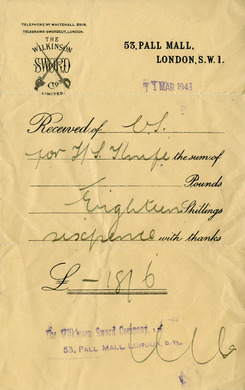 TELEPHONE Nº WHITEHALL 2919.
TELEGRAMS: SWORDCUT, LONDON.
THE
WILKINSON
SWORD
Cº
LIMITED.
53, PALL MALL,
LONDON, S.W.1.
MAR 1943
Received of
for the sum of
Pounds
Eighteen Shillings
sixpence with thanks
£ - 18/6
The Wilkinson Sword Company, Ltd
53, PALL MALL, LONDON, S.W.